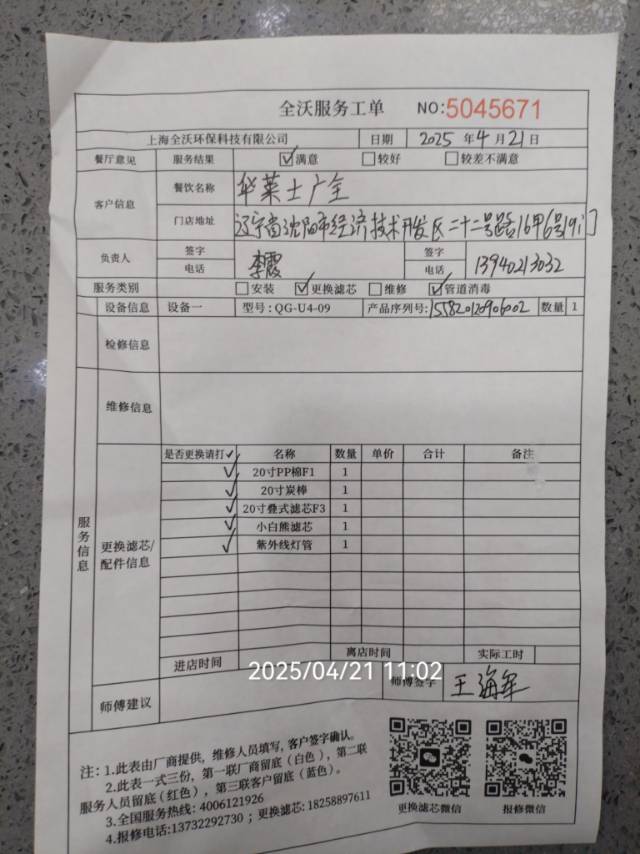 全沃服务工单 NO:5045671
上海全沃环保科技有限公司 日期 2025 年 4 月 21 日
餐厅意见 服务结果 ☑满意 □较好 □较差不满意
客户信息 餐饮名称 华莱士广全
门店地址 辽宁省沈阳市经济技术开发区二十二号路16甲6号19门
负责人 签字 李霞 签字
电话 电话 13940213032
服务类别 □安装 ☑更换滤芯 □维修 ☑管道消毒
设备信息 设备一 型号:QG-U4-09 产品序列号: 155820120906002 数量 1
检修信息
维修信息
服务信息
更换滤芯/配件信息
是否更换请打✓ 名称 数量 单价 合计 备注
✓ 20寸PP棉F1 1
✓ 20寸炭棒 1
✓ 20寸叠式滤芯F3 1
✓ 小白熊滤芯 1
✓ 紫外线灯管 1
进店时间 离店时间 实际工时
2025/04/21 11:02
师傅建议 师傅签字 王海军
注:1.此表由厂商提供，维修人员填写,客户签字确认。
2.此表一式三份，第一联厂商留底(白色)，第二联
服务人员留底(红色)，第三联客户留底(蓝色)。
3.全国服务热线: 4006121926
4.报修电话:13732292730；更换滤芯:18258897611
更换滤芯微信 报修微信